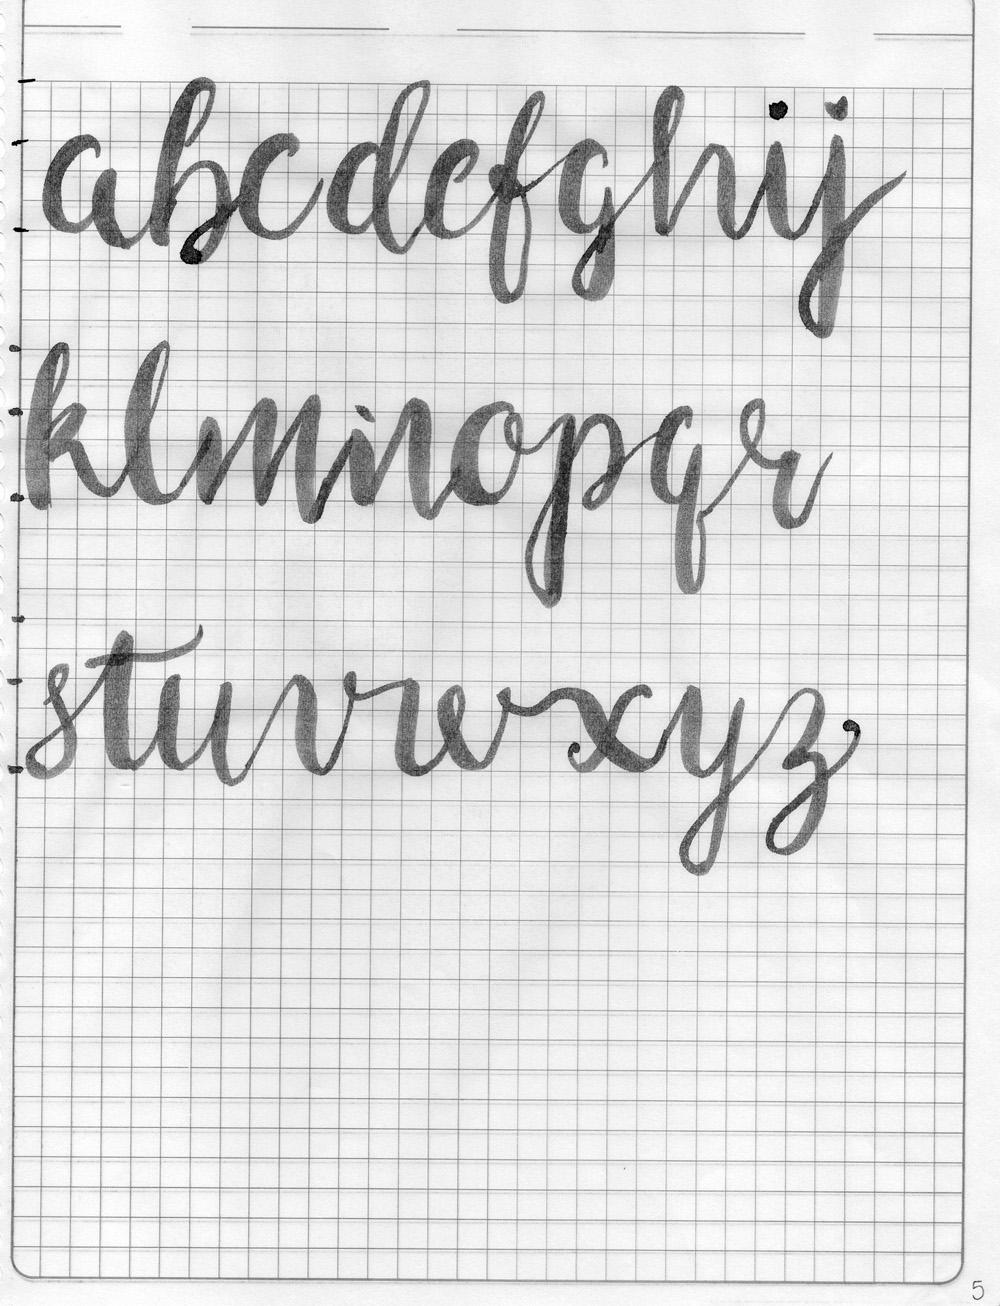 abcdefghij
klmnopqr
stuvwxyz
5